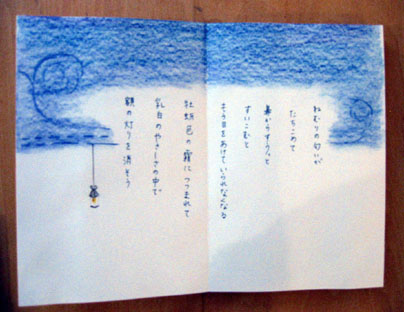 ねむりの匂いが
たちこめて
鼻からすうっと
すいこむと
もう目をあけていられなくなる
牡蛎色の霧につつまれて
乳白のやさしさの中で
額の灯りを消そう